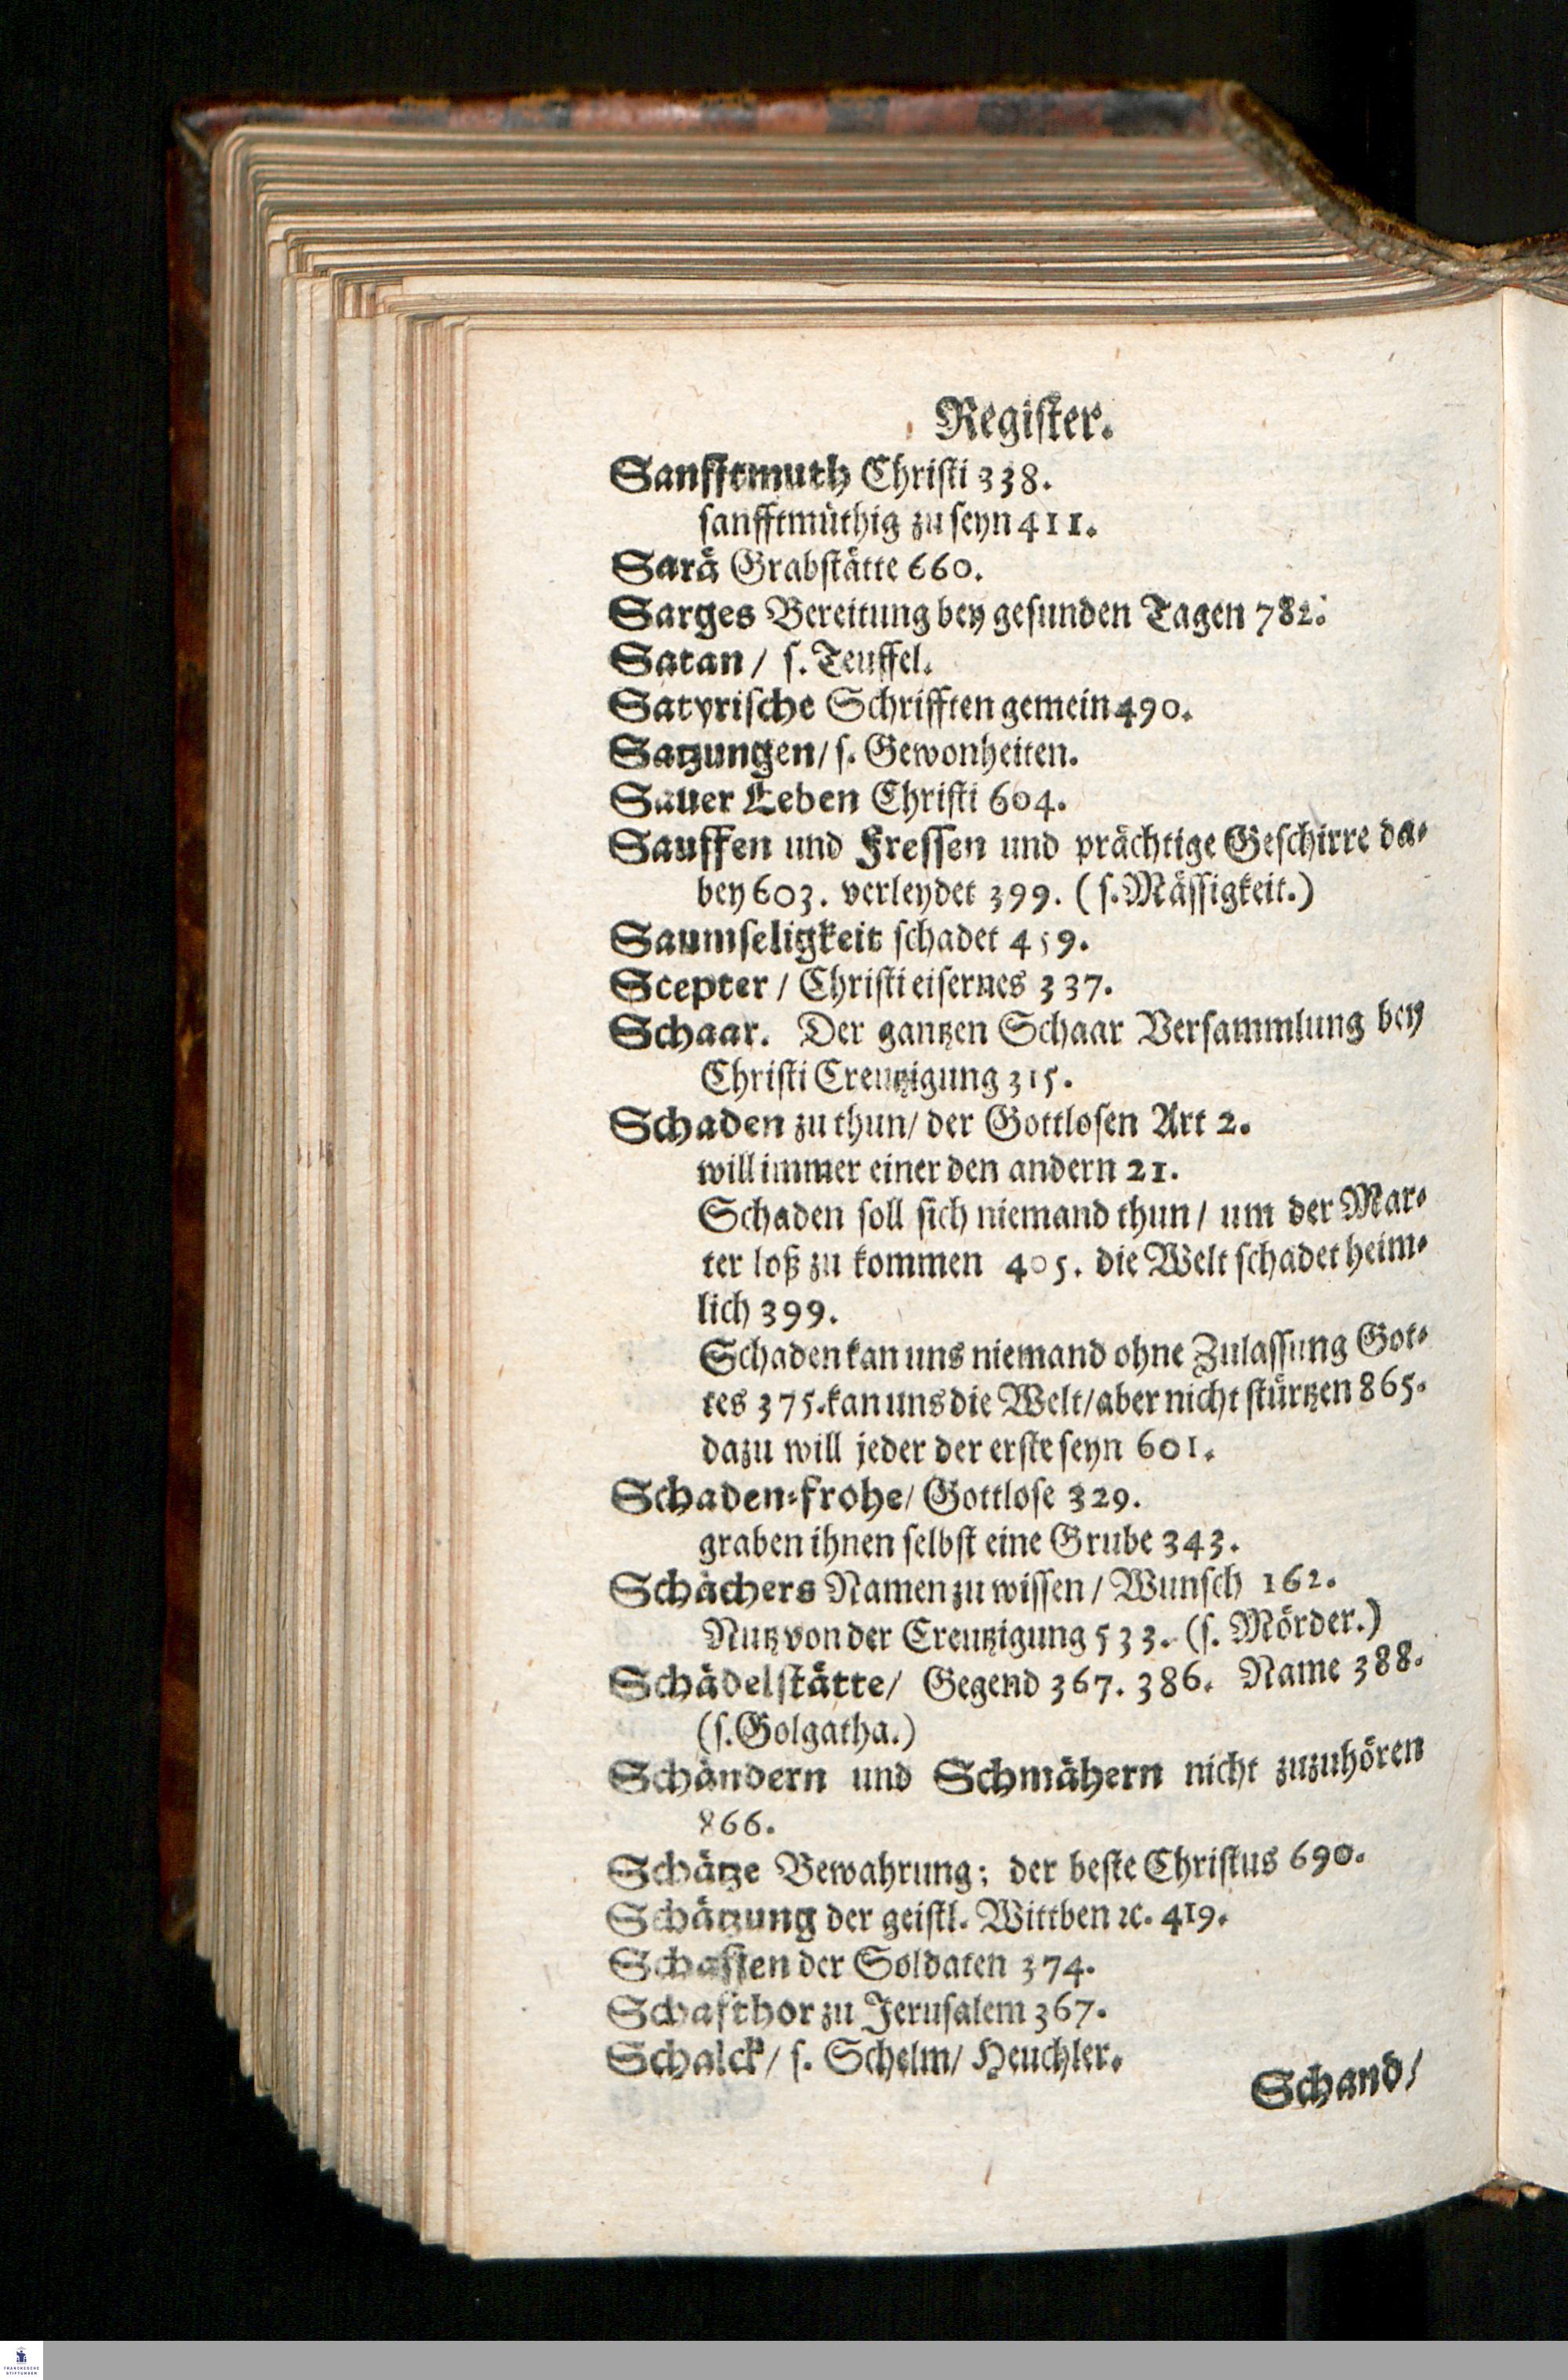 Register.
Sanfftmuth Christi 338.
sanfftmüthig zu seyn 411.
Sarä Grabstätte 660.
Sarges Bereitung bey gesunden Tagen 782.
Satan / s. Teuffel.
Satyrische Schrifften gemein 490.
Satzungen / s. Gewonheiten.
Sauer Leben Christi 604.
Sauffen und Fressen und prächtige Geschirre da-
bey 603. verleydet 399. ( s. Mässigkeit.)
Saumseligkeit schadet 459.
Scepter / Christi eisernes 337.
Schaar. Der gantzen Schaar Versammlung bey
Christi Creutzigung 315.
Schaden zu thun / der Gottlosen Art 2.
will immer einer den andern 21.
Schaden soll sich niemand thun / um der Mar-
ter loß zu kommen 405. die Welt schadet heim-
lich 399.
Schaden kan uns niemand ohne Zulassung Got-
tes 375. kan uns die Welt / aber nicht stürtzen 865.
dazu will jeder der erste seyn 601.
Schaden-frohe / Gottlose 329.
graben ihnen selbst eine Grube 343.
Schächers Namen zu wissen / Wunsch 162.
Nutz von der Creutzigung 533. (s. Mörder.)
Schädelstätte / Gegend 367. 386. Name 388.
(s. Golgatha.)
Schändern und Schmähern nicht zuzuhören
866.
Schätze Bewahrung; der beste Christus 690.
Schätzung der geistl. Wittben ꝛc. 419.
Schaffen der Soldaten 374.
Schafthor zu Jerusalem 367.
Schalck / s. Schelm / Heuchler.
Schand /
FRANCKESCHE
STIFTUNGEN